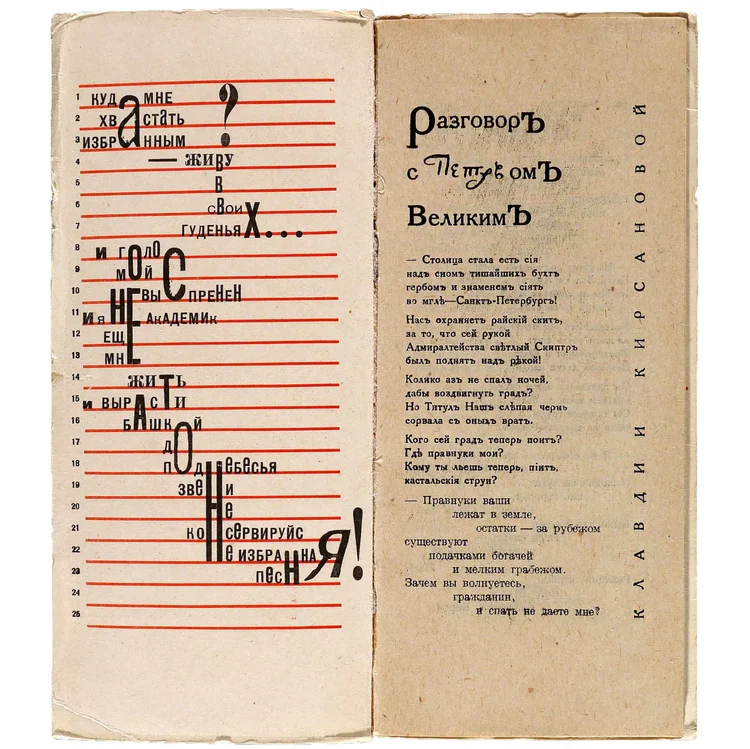 1 КУДА МНЕ
2 ХВАСТАТЬ
3 ИЗБРАННЫМ ?
4 — ЖИВУ
5 В
6 СВОИХ
7 ГУДЕНЬЯХ...
8 И ГОЛОС
9 МОЙ
10 НЕ ВЫСПРЕНЕН
11 И Я НЕ АКАДЕМИК
12 ЕЩЕ
13 МНЕ
14 ЖИТЬ
15 И ВЫРАСТИ
16 БАШКОЙ
17 ДО
18 ПОДНЕБЕСЬЯ
19 ЗВЕНИ
20 НЕ
21 КОНСЕРВИРУЙСЯ
22 НЕИЗБРАННАЯ
23 ПЕСНЯ!
24
25
РазговорЪ
с ПетрѣомЪ
ВеликимЪ
— Столица стала есть сія
надъ сном тишайших бухт
гербом и знаменем сіять
во мглѣ—Санктъ-Петербургъ!
Насъ охраняетъ райскій скит,
за то, что сей рукой
Адмиралтейства свѣтлый Скиптръ
былъ поднятъ надъ рѣкой!
Колико азъ не спалъ ночей,
дабы воздвигнуть градъ?
Но Титулъ Нашъ слѣпая чернь
сорвала съ оныхъ врат.
Кого сей градъ теперь поит?
Гдѣ правнуки мои?
Кому ты льешь теперь, піит,
кастальскія струи?
— Правнуки ваши
лежат в земле,
остатки — за рубежом
существуют
подачками богачей
и мелким грабежом.
Зачем вы волнуетесь,
гражданин,
и спать не даете мне?
КЛАВДИИ КИРСАНОВОЙ